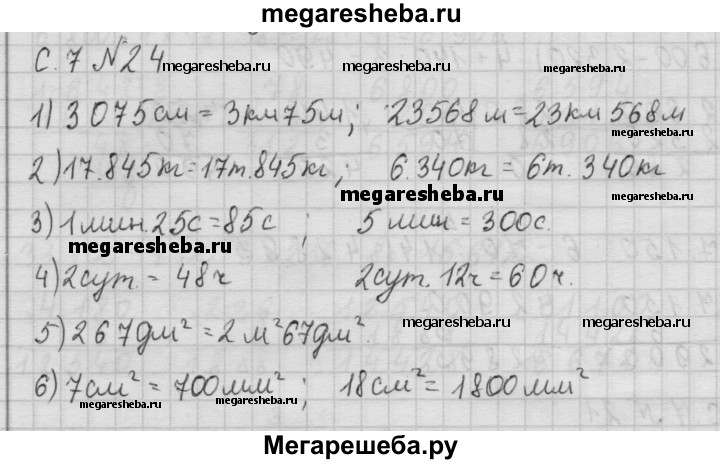 megaresheba.ru
С.7 №24 megaresheba.ru megaresheba.ru megaresheba.ru
1) 3 075см = 3км75м; 23568м=23км 568м
megaresheba.ru
2) 17.845кг=17т.845кг; 6.340кг = 6т.340кг
megaresheba.ru
3) 1мин.25с=85с; 5мин=300с.
megaresheba.ru
4) 2сут.= 48ч 2сут.12ч=60ч.
5) 267дм²=2м²67дм². megaresheba.ru megaresheba.ru
6) 7см²= 700мм²; 18см²=1800мм²
megaresheba.ru megaresheba.ru
Мегарешеба.ру